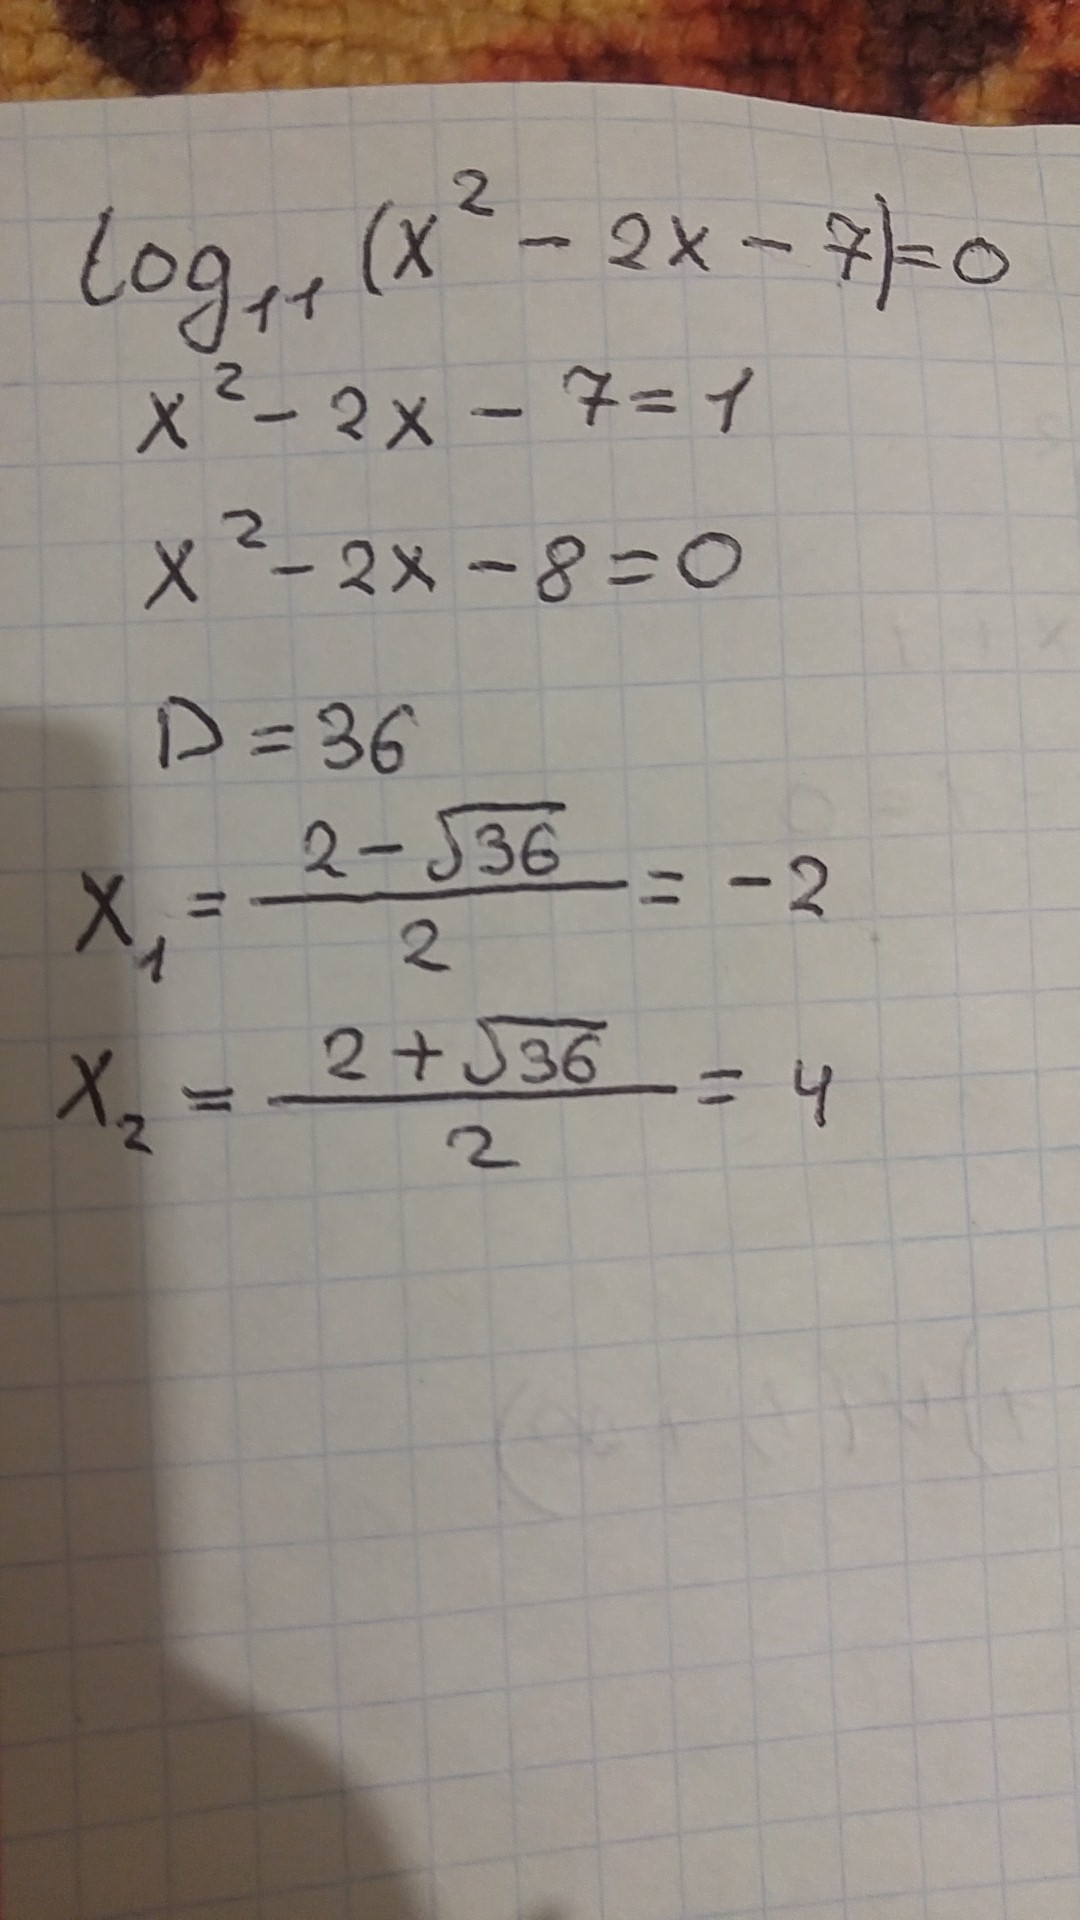 log₁₁ (x² - 2x - 7) = 0
x² - 2x - 7 = 1
x² - 2x - 8 = 0
D = 36
x₁ = (2 - √36)/2 = -2
x₂ = (2 + √36)/2 = 4